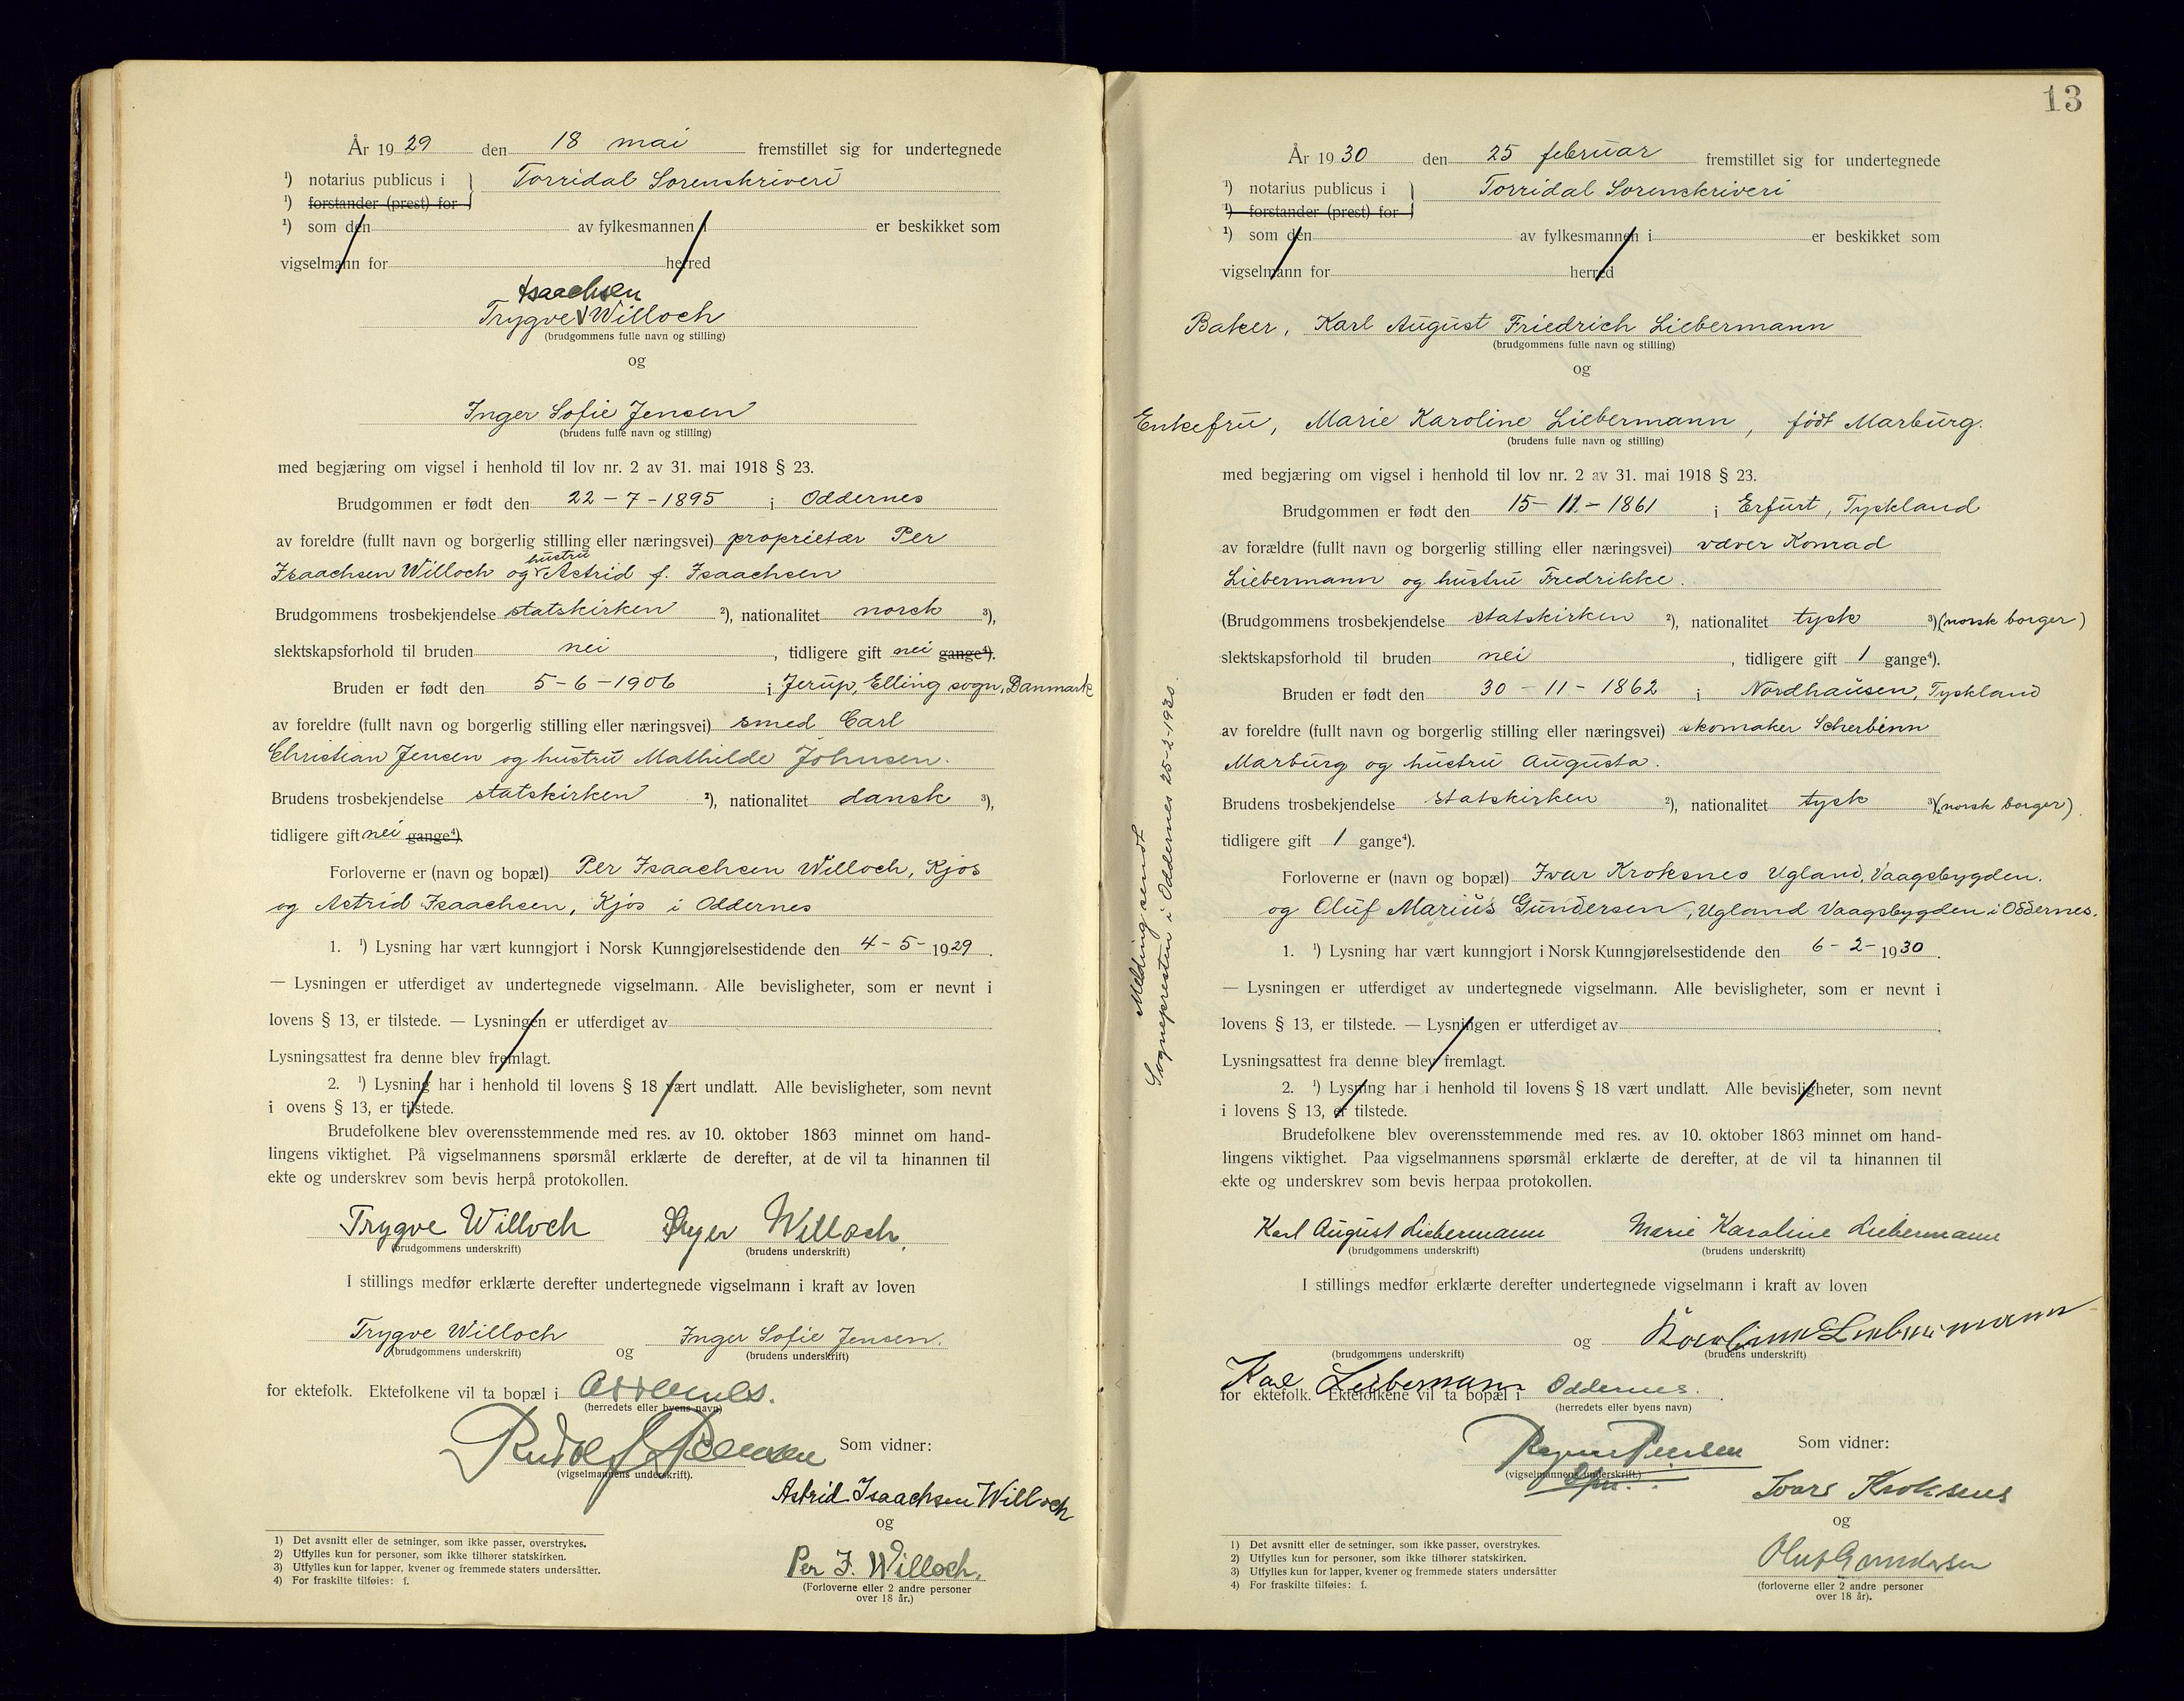 År 1929 den 18 mai fremstillet sig for undertegnede
¹) notarius publicus i } Torridal Sorenskriveri
¹) forstander (prest) for
¹) som den av fylkesmannen i er beskikket som
vigselmann for herred
Isaachsen
Trygve V Willoch
(brudgommens fulle navn og stilling)
og
Inger Sofie Jensen
(brudens fulle navn og stilling)
med begjæring om vigsel i henhold til lov nr. 2 av 31. mai 1918 § 23.
Brudgommen er født den 22-7-1895 i Oddernes
av foreldre (fullt navn og borgerlig stilling eller næringsvei) proprietær Per
hustru
Isaachsen Willoch og Astrid f. Isaachsen
Brudgommens trosbekjendelse statskirken ²), nationalitet norsk ³),
slektskapsforhold til bruden nei, tidligere gift nei gange⁴).
Bruden er født den 5-6-1906 i Jerup, Elling sogn, Danmark
av foreldre (fullt navn og borgerlig stilling eller næringsvei) smed Carl
Christian Jensen og hustru Mathilde Johnsen.
Brudens trosbekjendelse statskirken ²), nationalitet dansk ³),
tidligere gift nei gange⁴).
Forloverne er (navn og bopæl) Per Isaachsen Willoch, Kjos
og Astrid Isaachsen, Kjos i Oddernes
1. ¹) Lysning har vært kunngjort i Norsk Kunngjørelsestidende den 4-5-1929.
— Lysningen er utferdiget av undertegnede vigselmann. Alle bevisligheter, som er nevnt i
lovens § 13, er tilstede. — Lysningen er utferdiget av
Lysningsattest fra denne blev fremlagt.
2. ¹) Lysning har i henhold til lovens § 18 vært undlatt. Alle bevisligheter, som nevnt
i ovens § 13, er tilstede.
Brudefolkene blev overensstemmende med res. av 10. oktober 1863 minnet om hand-
lingens viktighet. På vigselmannens spørsmål erklærte de derefter, at de vil ta hinannen til
ekte og underskrev som bevis herpå protokollen.
Trygve Willoch Inger Willoch.
(brudgommens underskrift) (brudens underskrift)
I stillings medfør erklærte derefter undertegnede vigselmann i kraft av loven
Trygve Willoch og Inger Sofie Jensen.
(brudgommens underskrift) (brudens underskrift)
for ektefolk. Ektefolkene vil ta bopæl i Oddernes.
(herredets eller byens navn)
Som vidner:
(vigselmannens underskrift).
Astrid Isaachsen Willoch
og
Per I. Willoch.
(Forloverne eller 2 andre personer
over 18 år.)
1) Det avsnitt eller de setninger, som ikke passer, overstrykes.
2) Utfylles kun for personer, som ikke tilhører statskirken.
3) Utfylles kun for lapper, kvener og fremmede staters undersåtter.
4) For fraskilte tilføies: f.
13
År 1930 den 25 februar fremstillet sig for undertegnede
¹) notarius publicus i } Torridal Sorenskriveri
¹) forstander (prest) for
¹) som den av fylkesmannen i er beskikket som
vigselmann for herred
Baker, Karl August Friedrich Liebermann
(brudgommens fulle navn og stilling)
og
Enkefru, Marie Karoline Liebermann, født Marburg.
(brudens fulle navn og stilling)
med begjæring om vigsel i henhold til lov nr. 2 av 31. mai 1918 § 23.
Brudgommen er født den 15-11-1861 i Erfurt, Tyskland
av forældre (fullt navn og borgerlig stilling eller næringsvei) væver Konrad
Liebermann og hustru Fredrikke.
(Brudgommens trosbekjendelse statskirken ²), nationalitet tysk ³) (norsk borger)
slektskapsforhold til bruden nei, tidligere gift 1 gange⁴).
Bruden er født den 30-11-1862 i Nordhausen, Tyskland
av foreldre (fullt navn og borgerlig stilling eller næringsvei) skomaker Scherbinn
Marburg og hustru Augusta.
Brudens trosbekjendelse statskirken ²), nationalitet tysk ³) (norsk borger).
tidligere gift 1 gange⁴).
Forloverne er (navn og bopæl) Ivar Kroksnes Ugland, Vaagsbygden.
og Oluf Marius Gundersen, Ugland Vaagsbygden i Oddernes.
1. ¹) Lysning har vært kunngjort i Norsk Kunngjørelsestidende den 6-2-1930.
— Lysningen er utferdiget av undertegnede vigselmann. Alle bevisligheter, som er nevnt i
lovens § 13, er tilstede. — Lysningen er utferdiget av
Lysningsattest fra denne blev fremlagt.
2. ¹) Lysning har i henhold til lovens § 18 vært undlatt. Alle bevisligheter, som nevnt
i lovens § 13, er tilstede.
Brudefolkene blev overensstemmende med res. av 10. oktober 1863 minnet om hand-
lingens viktighet. Paa vigselmannens spørsmål erklærte de derefter, at de vil ta hinannen til
ekte og underskrev som bevis herpaa protokollen.
Karl August Liebermann Marie Karoline Liebermann
(brudgommens underskrift) (brudens underskrift)
I stillings medfør erklærte derefter undertegnede vigselmann i kraft av loven
og Karoline Liebermann
(brudgommens underskrift) (brudens underskrift)
Karl Liebermann
for ektefolk. Ektefolkene vil ta bopæl i Oddernes.
(herredets eller byens navn)
Som vidner:
(vigselmannens underskrift.)
Ivars Kroksnes
og
Oluf Gundersen
(forloverne eller 2 andre personer
over 18 år).
1) Det avsnitt eller de setninger, som ikke passer, overstrykes.
2) Utfylles kun for personer, som ikke tilhører statskirken.
3) Utfylles kun for lapper, kvener og fremmede staters undersåtter
4) For fraskilte tilføies: f.
Melding sendt
Sogneprestem i Oddernes 25-2-1930.